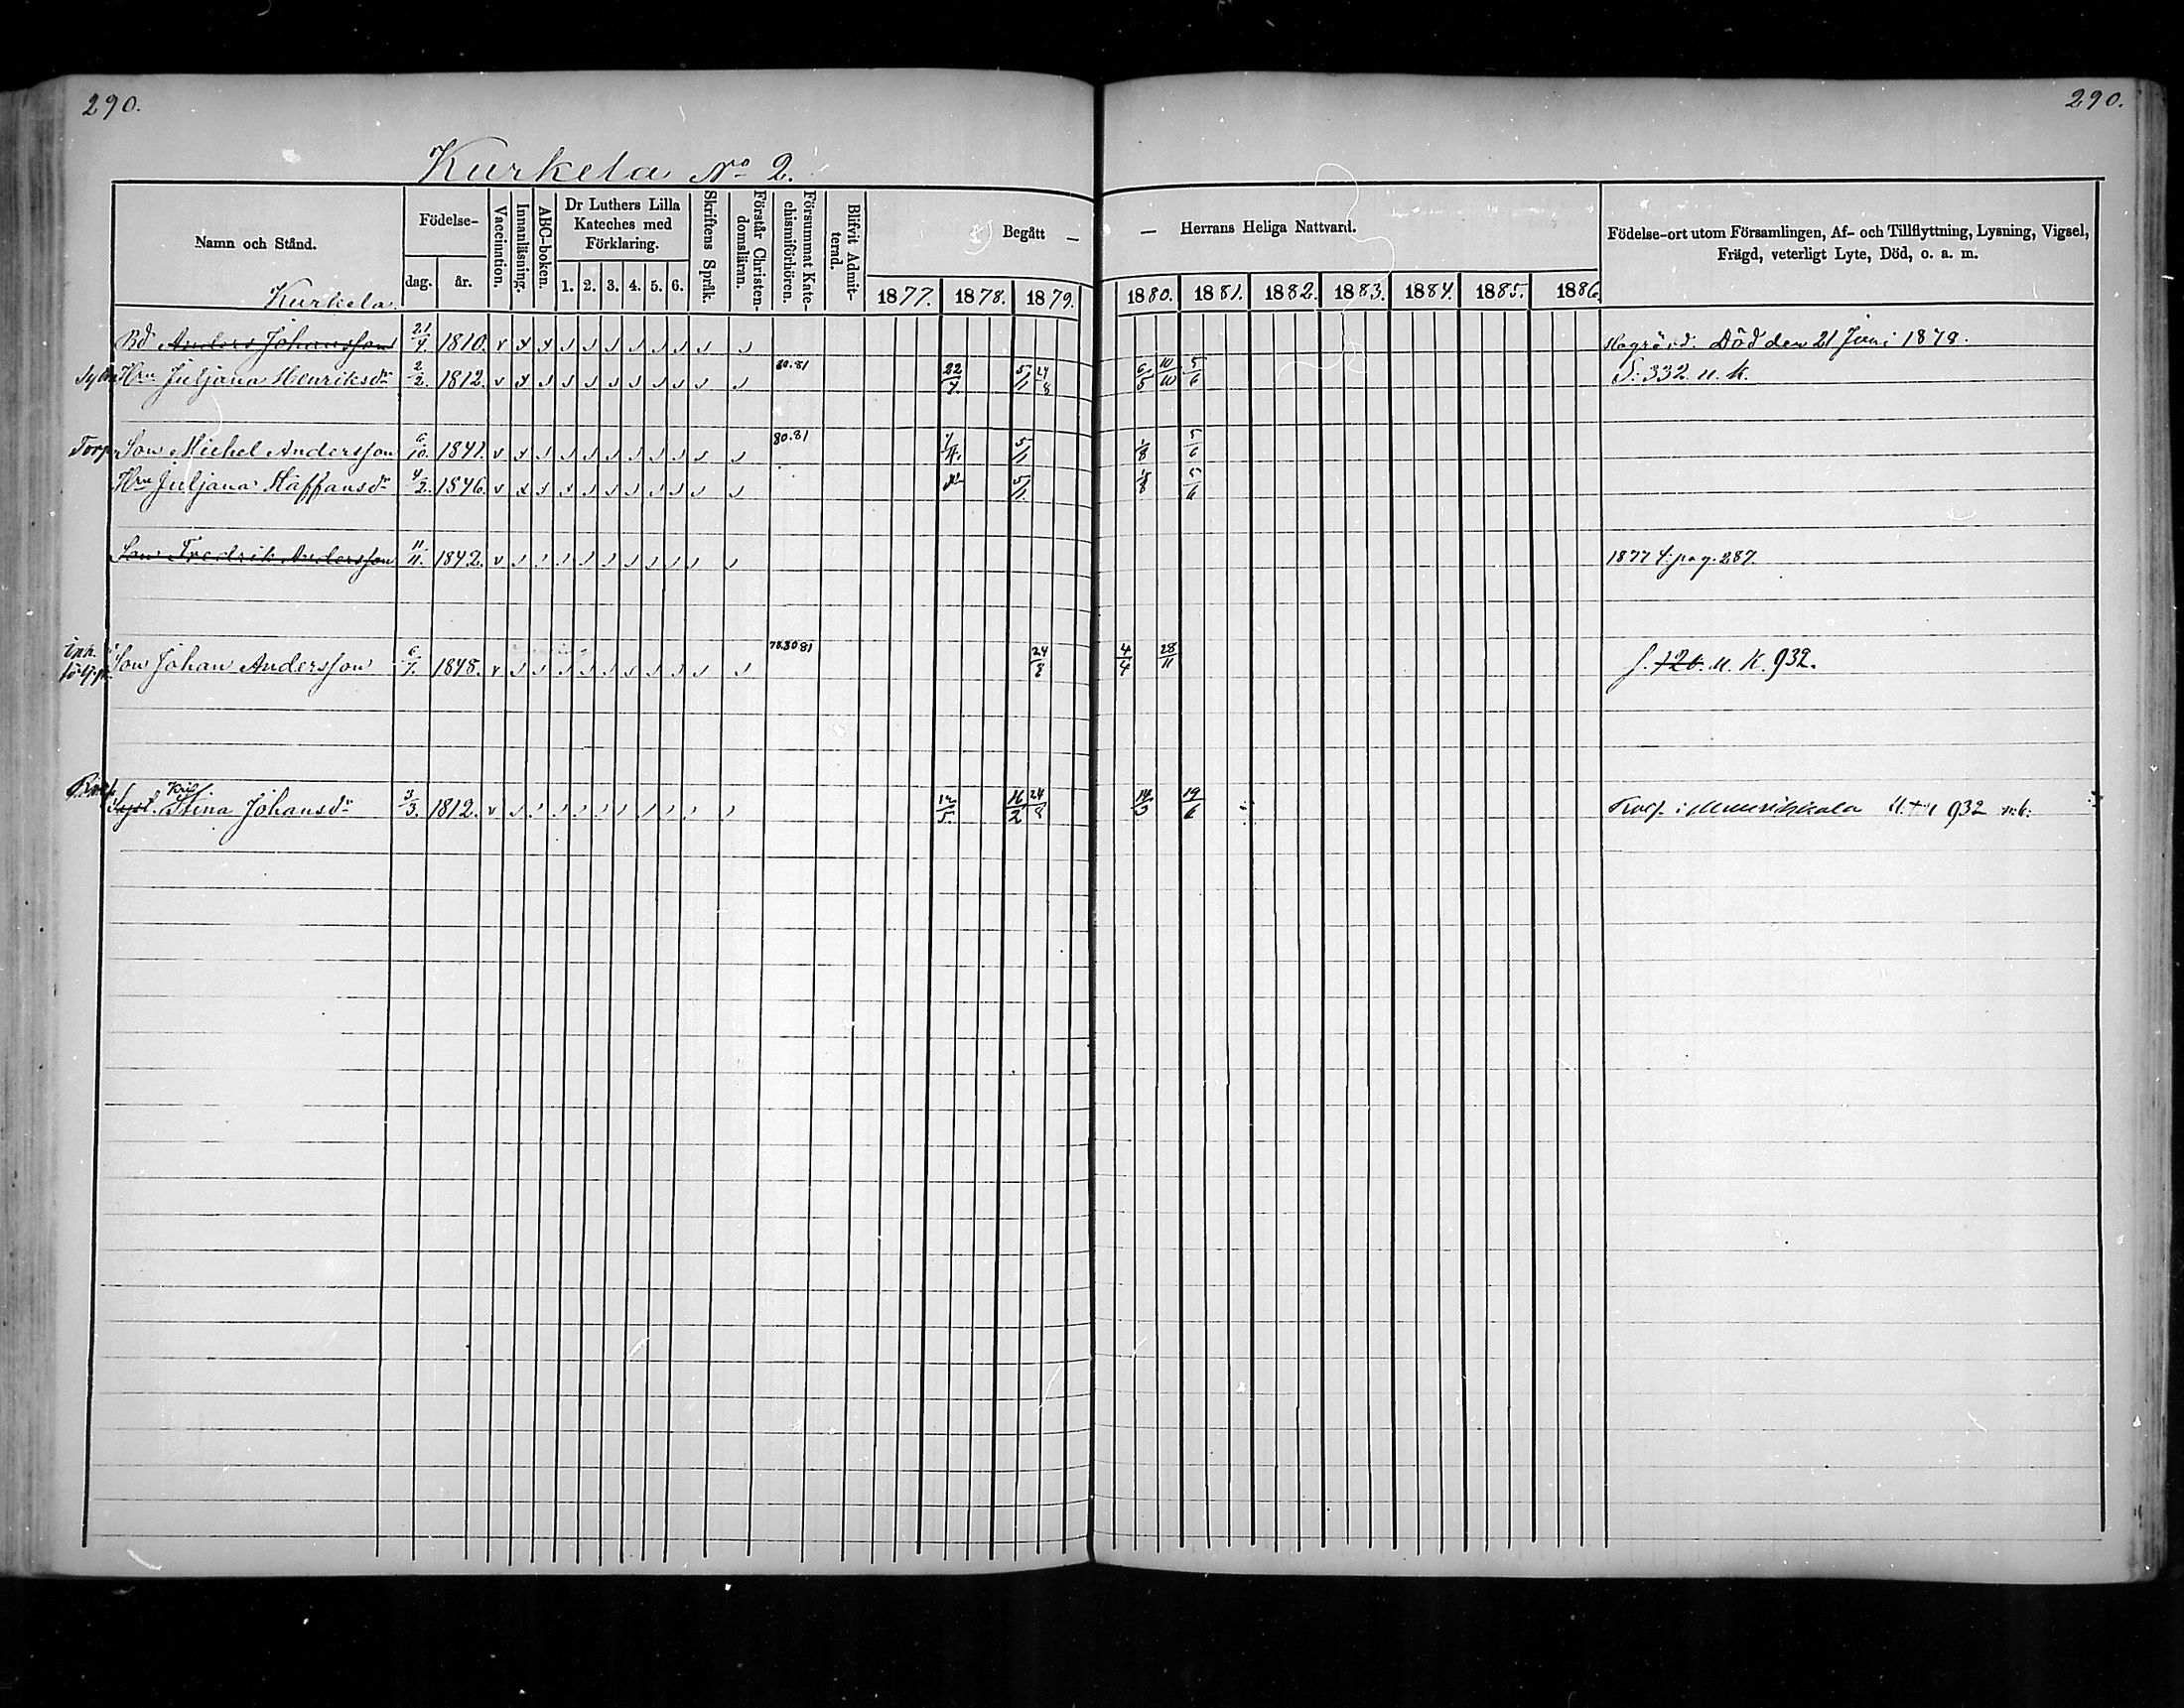 290.
290.
Kurkela No 2.
Namn och Stånd.
Födelse-
dag.
år.
Vaccination.
Innanläsning.
ABC-boken.
Dr Luthers Lilla
Kateches med
Förklaring.
1. 2. 3. 4. 5. 6.
Skriftens Språk.
Förstår Christen-
domsläran.
Försummat Kate-
chismiförhören.
Blifvit Admit-
terad.
Begått —
— Herrans Heliga Nattvard.
1877. 1878. 1879. 1880. 1881. 1882. 1883. 1884. 1885. 1886.
Födelse-ort utom Församlingen, Af- och Tillflyttning, Lysning, Vigsel,
Frägd, veterligt Lyte, Död, o. a. m.
Kurkela.
Bd Anders Johansson 21/4. 1810. Död den 21 Juni 1879.
Hru Juljana Henriksdr 2/2. 1812. 80.81 22/4. 5/1 24/8 6/5 10/10 5/6 S: 332. u. k.
Torp. Son Michel Andersson 6/10. 1841. 80.81 5/1 5/6
Hru Juljana Staffansdr 4/2. 1846. 5/1 5/6
Son Fredrik Andersson 11/11. 1842. 1877 f: pag. 287.
Son Johan Andersson 6/7. 1848. 78.80 81 24/8 4/4 28/11 f. 126. u. K. 932.
Stina Johansdr 3/3. 1812. 12/5. 16/2 24/8 14/3 19/6 932